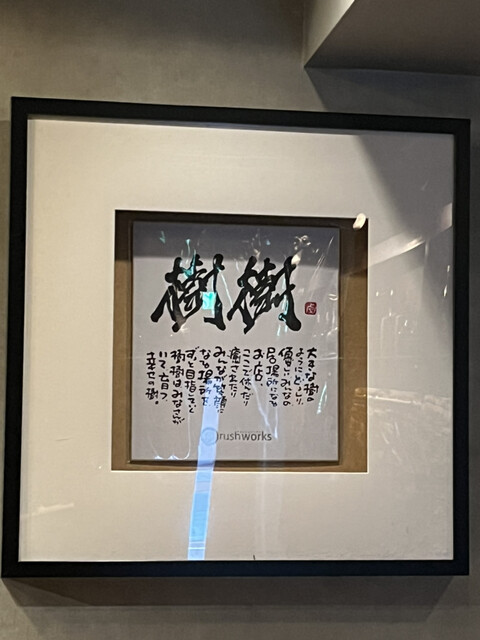 樹樹
大きな樹の
ようにどっしり、
優しいみんなの
居場所になる
お店。
ここで休んだり
癒されたり
みんなが笑顔に
なる場所を
ずっと目指してく
樹樹はみなさんが
いて育つ、
幸せの樹。
rushworks